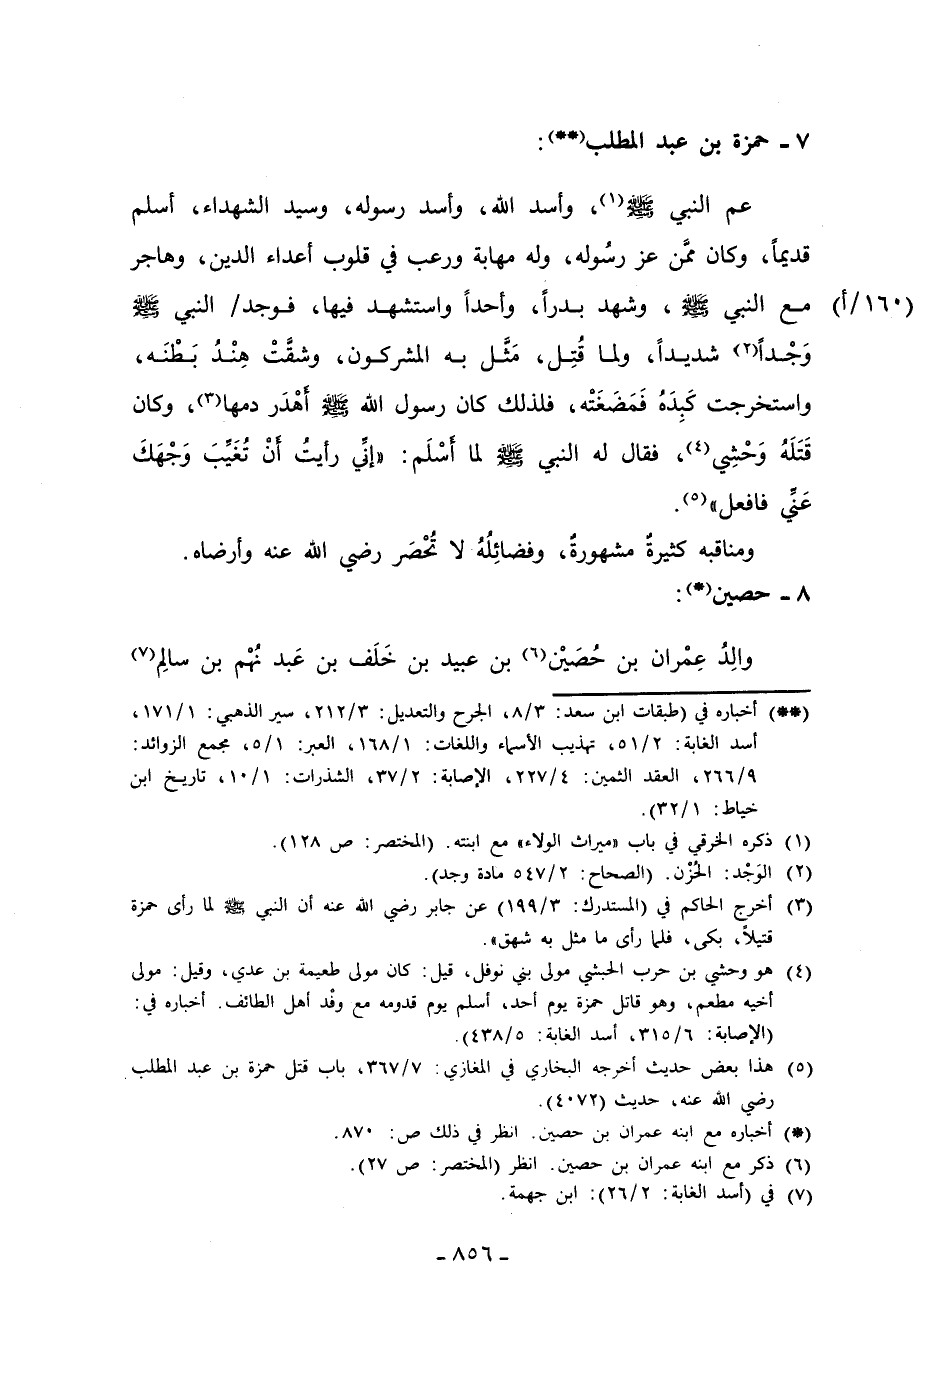 ٧ ـ حمزة بن عبد المطلب(**):
عم النبي ﷺ(١)، وأسد الله، وأسد رسوله، وسيد الشهداء، أسلم
قديماً، وكان ممَّن عز رسُوله، وله مهابة ورعب في قلوب أعداء الدين، وهاجر
(١٦٠/أ) مع النبي ﷺ، وشهد بدراً، وأحداً واستشهد فيها، فوجد/ النبي ﷺ
وَجْداً(٢) شديداً، ولما قُتِل، مَثَّل به المشركون، وشقَّتْ هِنْدُ بَطْنَه،
واستخرجت كَبِدَهُ فَمَضَغَتْه، فلذلك كان رسول الله ﷺ أَهْدَر دمها(٣)، وكان
قَتَلَهُ وَحْشِي(٤)، فقال له النبي ﷺ لما أَسْلَم: «إنِّي رأيتُ أَنْ تُغَيِّبَ وَجْهَكَ
عَنِّي فافعل»(٥).
ومناقبه كثيرةٌ مشهورةٌ، وفضائِلُهُ لا تُحْصَر رضي الله عنه وأرضاه.
٨ ـ حصين(*):
والِدُ عِمْران بن حُصَيْن(٦) بن عبيد بن خَلَف بن عَبد نُهْم بن سالم(٧)
(**) أخباره في (طبقات ابن سعد: ٨/٣، الجرح والتعديل: ٢١٢/٣، سير الذهبي: ١٧١/١،
أسد الغابة: ٥١/٢، تهذيب الأسماء واللغات: ١٦٨/١، العبر: ٥/١، مجمع الزوائد:
٢٦٦/٩، العقد الثمين: ٢٢٧/٤، الإصابة: ٣٧/٢، الشذرات: ١٠/١، تاريخ ابن
خياط: ٣٢/١).
(١) ذكره الخرقي في باب «ميراث الولاء» مع ابنته. (المختصر: ص ١٢٨).
(٢) الوَجْد: الحُزْن. (الصحاح: ٥٤٧/٢ مادة وجد).
(٣) أخرج الحاكم في (المستدرك: ١٩٩/٣) عن جابر رضي الله عنه أن النبي ﷺ لما رأى حمزة
قتيلاً، بكى، فلما رأى ما مثل به شهق».
(٤) هو وحشي بن حرب الحبشي مولى بني نوفل، قيل: كان مولى طعيمة بن عدي، وقيل: مولى
أخيه مطعم، وهو قاتل حمزة يوم أحد، أسلم يوم قدومه مع وفْد أهل الطائف. أخباره في:
(الإصابة: ٣١٥/٦، أسد الغابة: ٤٣٨/٥).
(٥) هذا بعض حديث أخرجه البخاري في المغازي: ٣٦٧/٧، باب قتل حمزة بن عبد المطلب
رضي الله عنه، حديث (٤٠٧٢).
(*) أخباره مع ابنه عمران بن حصين. انظر في ذلك ص: ٨٧٠.
(٦) ذكر مع ابنه عمران بن حصين. انظر (المختصر: ص ٢٧).
(٧) في (أسد الغابة: ٢٦/٢): ابن جهمة.
ـ ٨٥٦ ـ